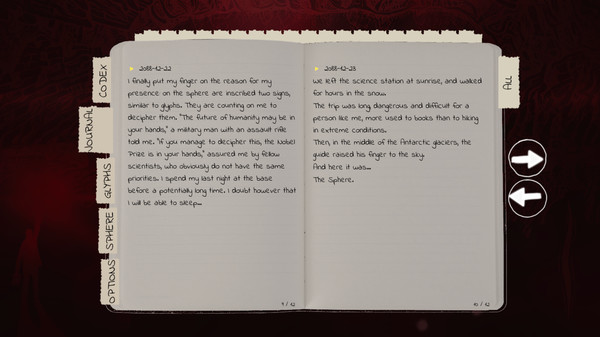 CODEX
JOURNAL
GLYPHS
SPHERE
OPTIONS
2088-12-22
I finally put my finger on the reason for my
presence on the sphere are inscribed two signs,
similar to glyphs. They are counting on me to
decipher them. "The future of humanity may be in
your hands," a military man with an assault rifle
told me. "If you manage to decipher this, the Nobel
Prize is in your hands," assured me by fellow
scientists, who obviously do not have the same
priorities. I spend my last night at the base
before a potentially long time. I doubt however that
I will be able to sleep...
9 / 12
2088-12-23
We left the science station at sunrise, and walked
for hours in the snow.
The trip was long, dangerous and difficult for a
person like me, more used to books than to hiking
in extreme conditions.
Then, in the middle of the Antarctic glaciers, the
guide raised his finger to the sky.
And here it was...
The Sphere.
10 / 12
ALL